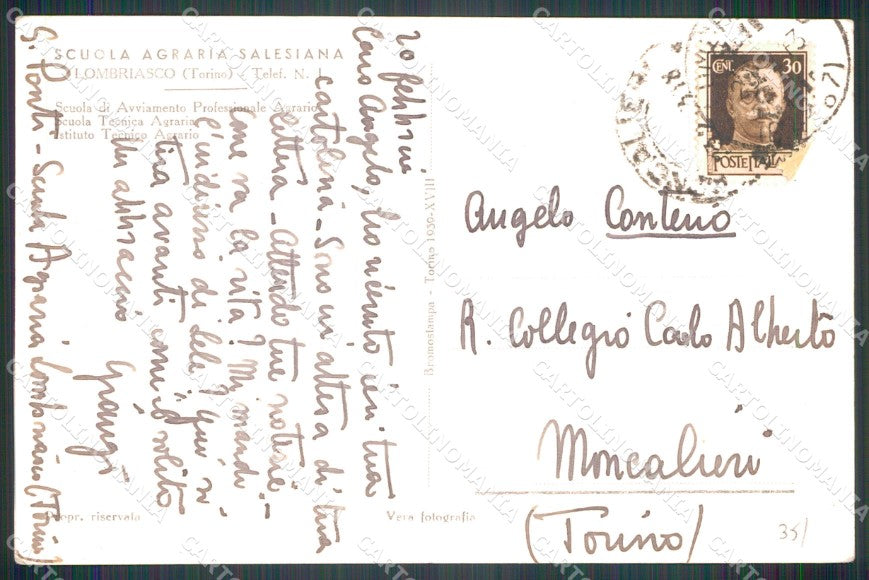 SCUOLA AGRARIA SALESIANA
LOMBRIASCO (Torino) - Telef. N. 1
Scuola di Avviamento Professionale Agrario
Scuola Tecnica Agraria
Istituto Tecnico Agrario
20 febbraio
Caro Angelo, ho ricevuto ieri tua
cartolina - Sono in attesa di tua
lettera - Attendo tue notizie -
Come va la vita? Mi mandi
l'indirizzo di Lele? Qui si
tira avanti come il solito
Un abbraccio
Giorgi
G. Ponti - Scuola Agraria Lombriasco (Torino)
Propr. riservata
Vera fotografia
Bromostampa - Torino 1939-XVIII
CENT. 30
POSTE ITALIANE
Angelo Conterno
R. Collegio Carlo Alberto
Moncalieri
(Torino)
35/
CARTOLINOMANIA